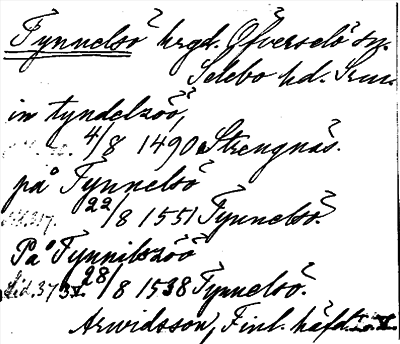 Tynnelsö hrgd. Öfverselö sn.
Selebo hd. Srm.
in tyndelzöö,
4/8 1490 Strengnäs.
på Tynnelsö
22/8 1551 Tynnelsö.
På Tynnilszöö
28/8 1538 Tynnelsö.
Arwidsson, Finl. häfd.